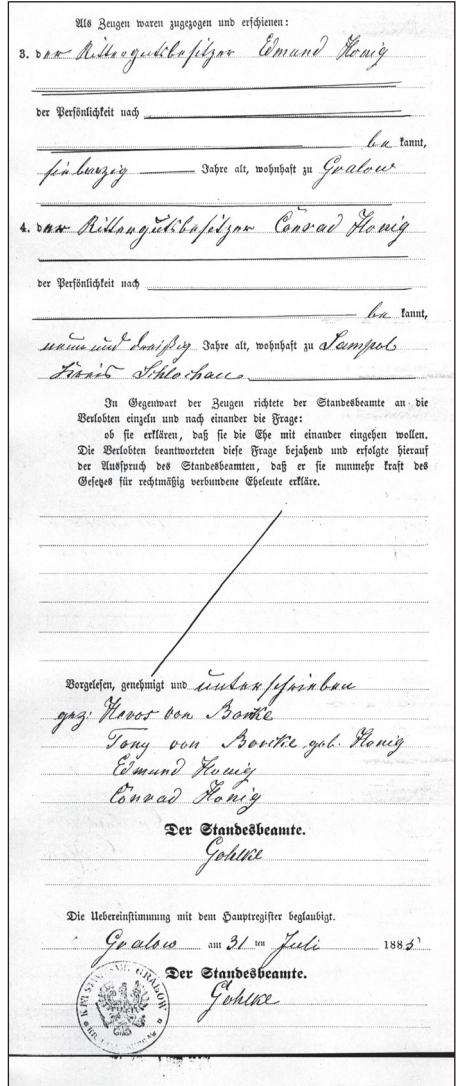 Als Zeugen waren zugezogen und erschienen:
3. der Rittergutsbesitzer Edmund Honig
der Persönlichkeit nach
be kannt,
siebenzig Jahre alt, wohnhaft zu Gralow
4. der Rittergutsbesitzer Conrad Honig
der Persönlichkeit nach
be kannt,
neun und dreißig Jahre alt, wohnhaft zu Sampol
Kreis Schlochau
In Gegenwart der Zeugen richtete der Standesbeamte an die
Verlobten einzeln und nach einander die Frage:
ob sie erklären, daß sie die Ehe mit einander eingehen wollen.
Die Verlobten beantworteten diese Frage bejahend und erfolgte hierauf
der Ausspruch des Standesbeamten, daß er sie nunmehr kraft des
Gesetzes für rechtmäßig verbundene Eheleute erkläre.
Vorgelesen, genehmigt und unterschrieben
gez: Heros von Borcke
Tony von Borcke geb. Honig
Edmund Honig
Conrad Honig
Der Standesbeamte.
Gohlke
Die Uebereinstimmung mit dem Hauptregister beglaubigt.
Gralow am 31 ten Juli 1885
Der Standesbeamte.
Gohlke
GRALOW